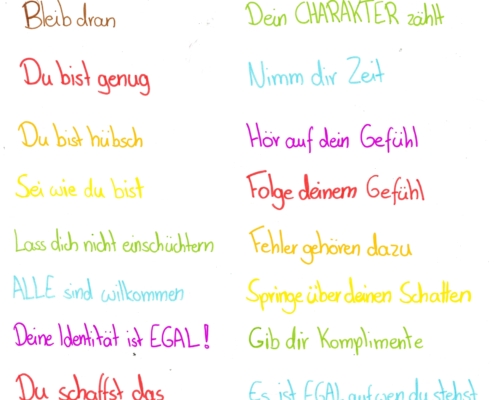 Bleib dran
Du bist genug
Du bist hübsch
Sei wie du bist
Lass dich nicht einschüchtern
ALLE sind willkommen
Deine Identität ist EGAL!
Du schaffst das
Dein CHARAKTER zählt
Nimm dir Zeit
Hör auf dein Gefühl
Folge deinem Gefühl
Fehler gehören dazu
Springe über deinen Schatten
Gib dir Komplimente
Es ist EGAL auf wen du stehst